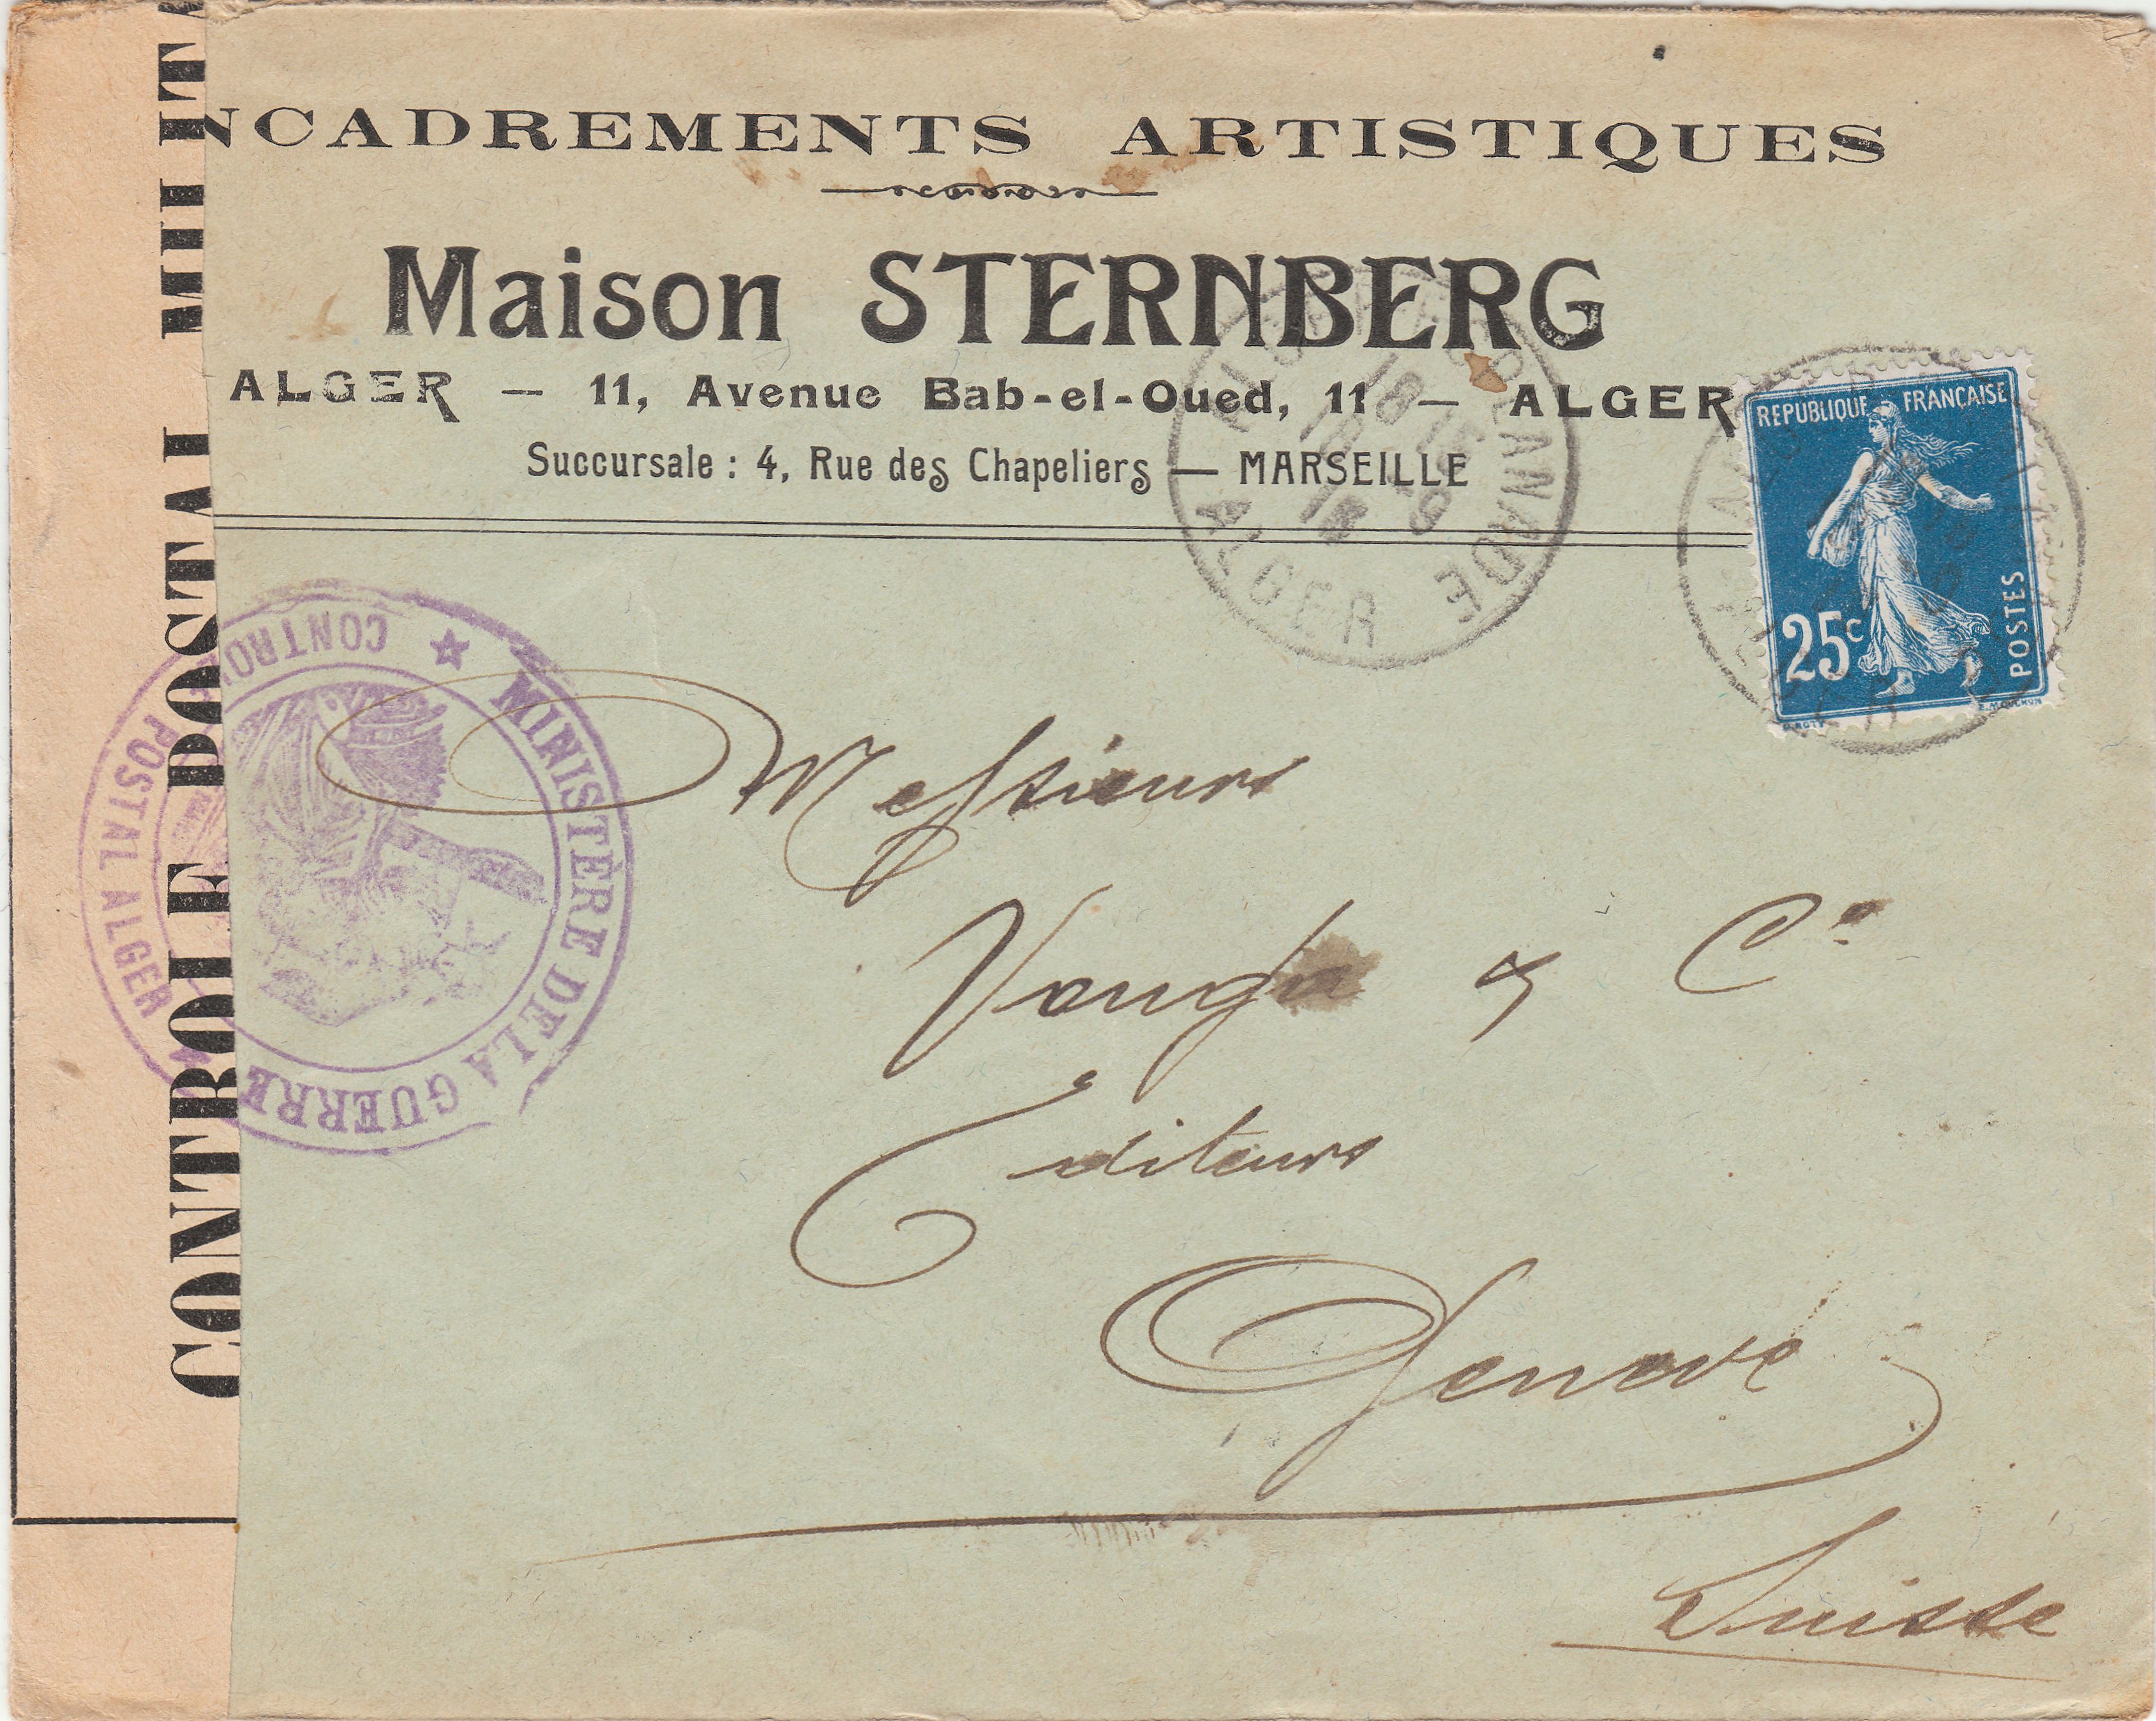 NCADREMENTS ARTISTIQUES
Maison STERNBERG
ALGER — 11, Avenue Bab-el-Oued, 11 — ALGER
Succursale : 4, Rue des Chapeliers — MARSEILLE
REPUBLIQUE FRANÇAISE
25c
POSTES
E. MOUCHON
18 15
10 -9
16
ALGER
CONTROLE POSTAL MILIT
MINISTÈRE DE LA GUERRE
CONTROLE POSTAL ALGER
Messieurs
& Cie
Editeurs
Genève
Suisse